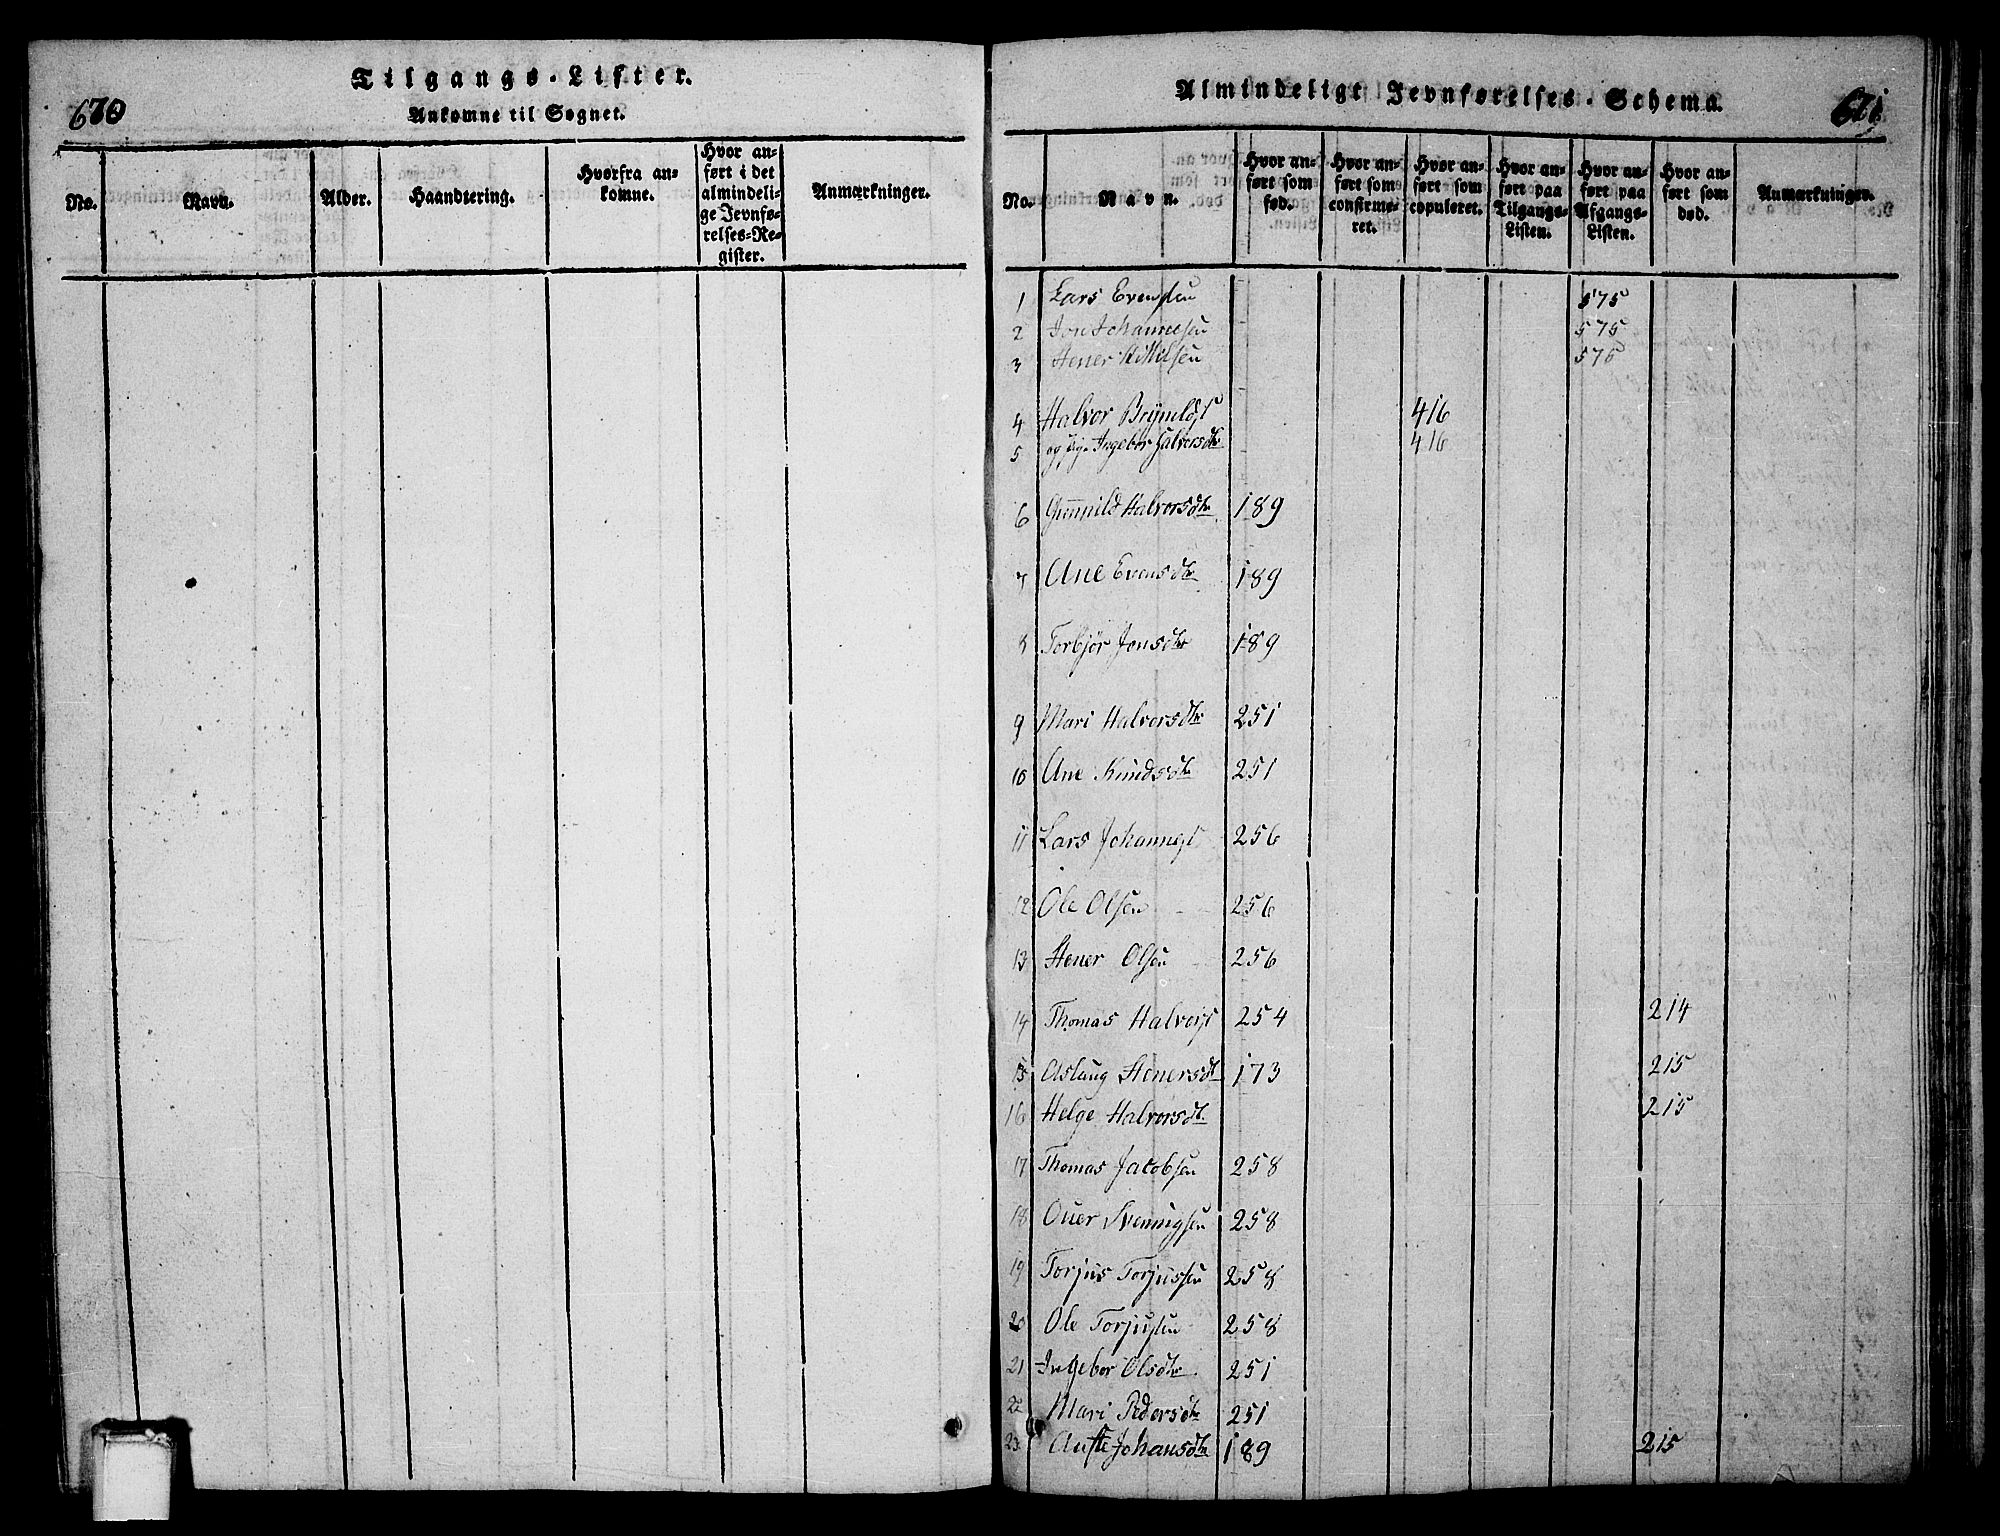 670
Tilgangs-Lister.
Ankomne til Sognet.
No. Navn. Alder. Haandtering. Hvorfra ankomne. Hvor anført i det almindelige Jevnførelses-Register. Anmærkninger.
Almindeligt Jevnførelses-Schema.
671
No. Navn. Hvor anført som fød. Hvor anført som confirmeret. Hvor anført som copuleret. Hvor anført paa Tilgangs-Listen. Hvor anført paa Afgangs-Listen. Hvor anført som død. Anmærkninger.
1 Lars Evensen 575
2 Jon Johannesen 575
3 Stener Kittilsen 575
4 Halvor Brynilds 416
5 og pig. Ingebor Halvorsdtr 416
6 Gunnild Halvorsdtr 189
7 Ane Evensdtr 189
8 Torbjør Jonsdtr 189
9 Mari Halvorsdtr 251
10 Ane Knudsdtr 251
11 Lars Johannes 256
12 Ole Olsen 256
13 Stener Olsen 256
14 Thomas Halvors 254 214
15 Aslaug Stenersdtr 173 215
16 Helge Halvorsdtr 215
17 Thomas Jacobsen 258
18 Over Svenningsen 258
19 Torjus Torjussen 258
20 Ole Torjusen 258
21 Ingebor Olsdtr 251
22 Mari Pedersdtr 251
23 Johansdtr 189 215